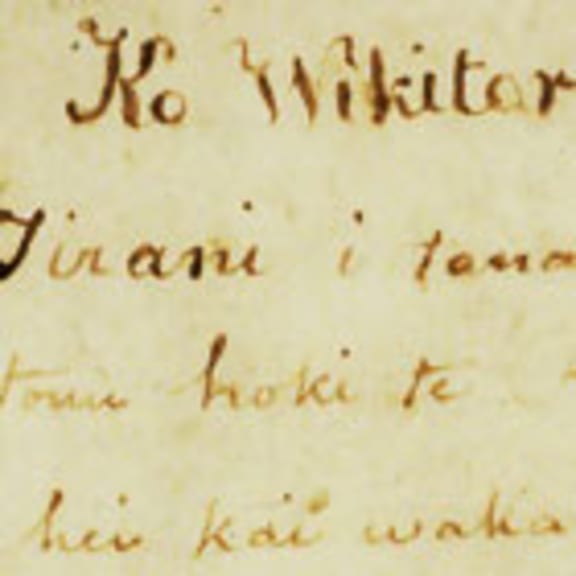 Ko Wikitor
Tirani i tana
tonu hoki te
hei kai waka